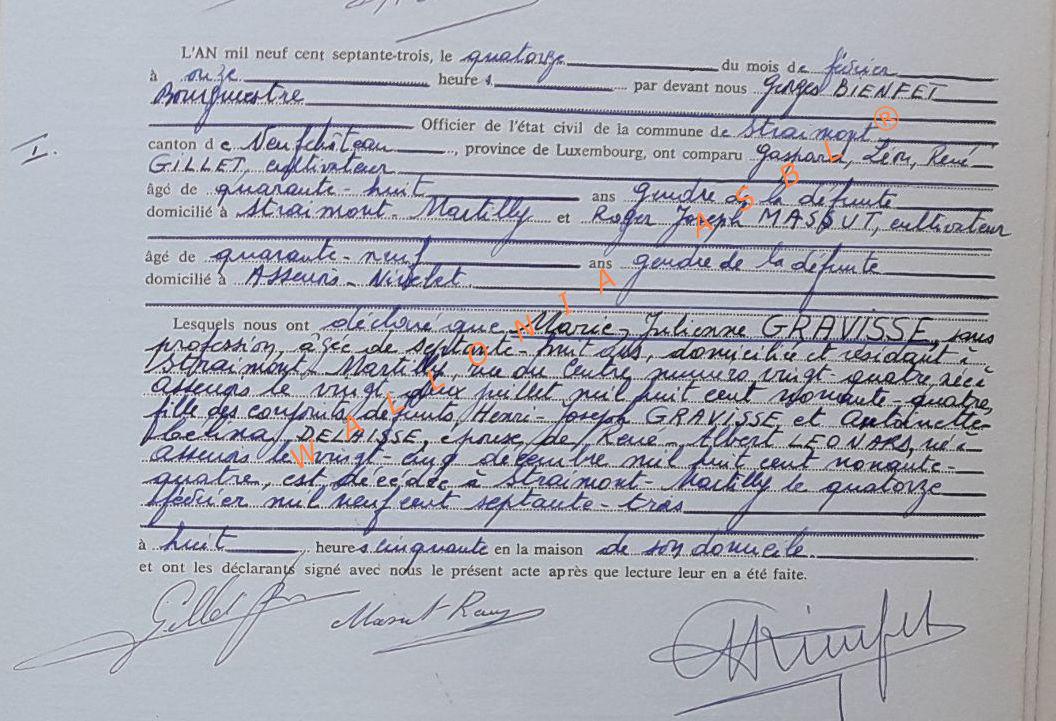 L'AN mil neuf cent septante-trois, le quatorze du mois de février
à onze heures par devant nous Georges BIENFET
Bourgmestre
Officier de l'état civil de la commune de Straimont
I.
canton de Neufchâteau, province de Luxembourg, ont comparu Gaspard, Léon, René
GILLET, cultivateur
âgé de quarante-huit ans gendre de la défunte
domicilié à Straimont-Martilly et Roger Joseph MASBUT, cultivateur
âgé de quarante-neuf ans gendre de la défunte
domicilié à Assenois-Nivelet.
Lesquels nous ont déclaré que Marie-Julienne GRAVISSE, sans
profession, âgée de septante-huit ans, domiciliée et résidant à
Straimont-Martilly, rue du Centre numéro vingt-quatre, née à
Assenois le vingt-deux juillet mil huit cent nonante-quatre,
fille des conjoints défunts, Henri-Joseph GRAVISSE, et Antoinette
DELAISSE, épouse de René-Albert LEONARD, né à
Assenois le vingt-cinq décembre mil huit cent nonante-
quatre, est décédée à Straimont-Martilly le quatorze
février mil neuf cent septante-trois
à huit heures cinquante en la maison de son domicile.
et ont les déclarants signé avec nous le présent acte après que lecture leur en a été faite.
WALLONIA ASBL ®
Gillet
Masbut